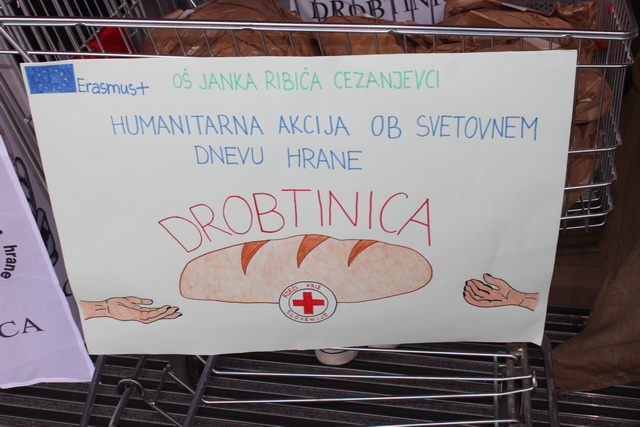 DROBTINA
Erasmus+
OŠ JANKA RIBIČA CEZANJEVCI
HUMANITARNA AKCIJA OB SVETOVNEM
DNEVU HRANE
DROBTINICA
RDEČI KRIŽ
SLOVENIJE
hrane
CA